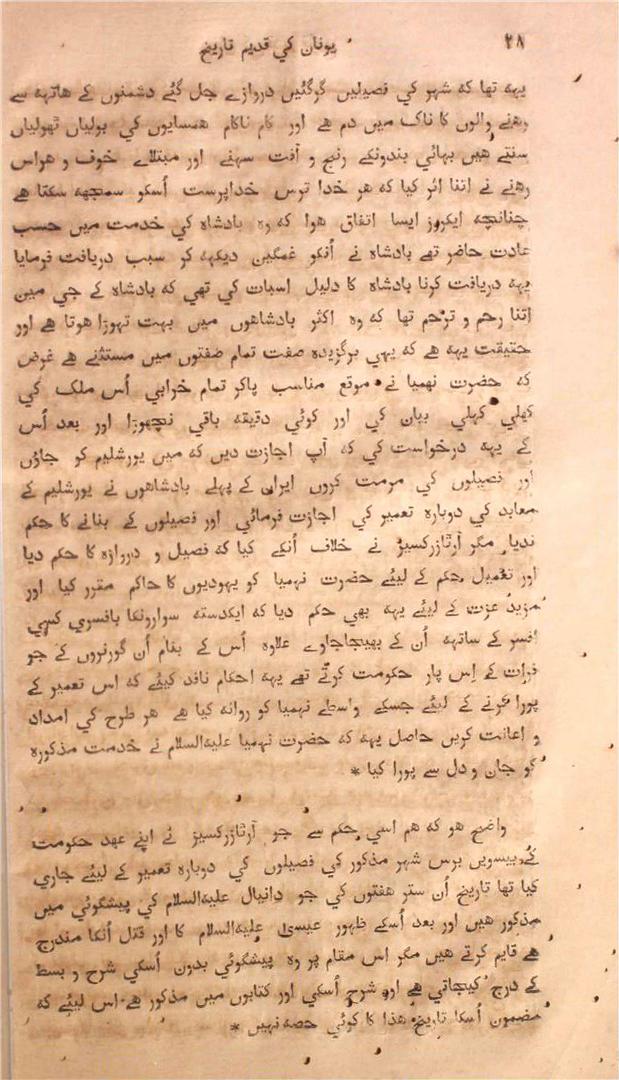 ۲۸ یونان کي قدیم تاریخ
یہہ تھا کہ شہر کي فصیلیں گرگئیں دروازے جل گئے دشمنوں کے ھاتھہ سے
رھنے والوں کا ناک میں دم ھے اور کام ناکام ھمسایوں کي بولیاں ٹھولیاں
سنتے ھیں بھائي بندونکے رنج و آفت سہنے اور مبتلاے خوف و ھراس
رھنے نے اتنا اثر کیا کہ ھر خدا ترس خداپرست اُسکو سمجھہ سکتا ھے
چنانچہ ایکروز ایسا اتفاق ھوا کہ وہ بادشاہ کي خدمت میں حسب
عادت حاضر تھے بادشاہ نے اُنکو غمگین دیکھہ کر سبب دریافت فرمایا
یہہ دریافت کرنا بادشاہ کا دلیل اسبات کي تھي کہ بادشاہ کے جي میں
اتنا رحم و ترحم تھا کہ وہ اکثر بادشاھوں میں بہت تھوڑا ھوتا ھے اور
حقیقت یہہ ھے کہ یہي برگزیدہ صفت تمام صفتوں میں مستثنے ھے غرض
کہ حضرت نہمیا نے موقع مناسب پاکر تمام خرابي اُس ملک کي
کھلي کھلي بیان کي اور کوئي دقیقہ باقي نچھوڑا اور بعد اُس
کے یہہ درخواست کي کہ آپ اجازت دیں کہ میں یورشلیم کو جاؤں
اور فصیلوں کي مرمت کروں ایران کے پہلے بادشاھوں نے یورشلیم کے
معابد کي دوبارہ تعمیر کي اجازت فرمائي اور فصیلوں کے بنانے کا حکم
ندیا مگر آرٹازرکسیز نے خلاف اُنکے کیا کہ فصیل و دروازہ کا حکم دیا
اور تعمیل حکم کے لیئے حضرت نہمیا کو یہودیوں کا حاکم مقرر کیا اور
مزید عزت کے لیئے یہہ بھي حکم دیا کہ ایکدستہ سوارونکا بافسري کسي
افسر کے ساتھہ اُن کے بھیجاجاوے علاوہ اُس کے بنام اُن گورنروں کے جو
فرات کے اِس پار حکومت کرتے تھے یہہ احکام نافذ کیئے کہ اس تعمیر کے
پورا کرنے کے لیئے جسکے واسطے نہمیا کو روانہ کیا ھے ھر طرح کي امداد
و اعانت کریں حاصل یہہ کہ حضرت نہمیا علیہ‌السلام نے خدمت مذکورہ
کو جان و دل سے پورا کیا *
واضح ھو کہ ھم اسي حکم سے جو آرٹازرکسیز نے اپنے عہد حکومت
کے بیسویں برس شہر مذکور کي فصیلوں کي دوبارہ تعمیر کے لیئے جاري
کیا تھا تاریخ اُن ستر ھفتوں کي جو دانیال علیہ‌السلام کي پیشگوئي میں
مذکور ھیں اور بعد اُسکے ظہور عیسیٰ علیہ‌السلام کا اور قتل اُنکا مندرج
ھے قایم کرتے ھیں مگر اس مقام پر وہ پیشگوئي بدون اُسکي شرح و بسط
کے درج کیجاتي ھے اور شرح اُسکي اور کتابوں میں مذکور ھے اس لیئے کہ
مضمون اُسکا تاریخ ھذا کا کوئي حصہ نہیں *